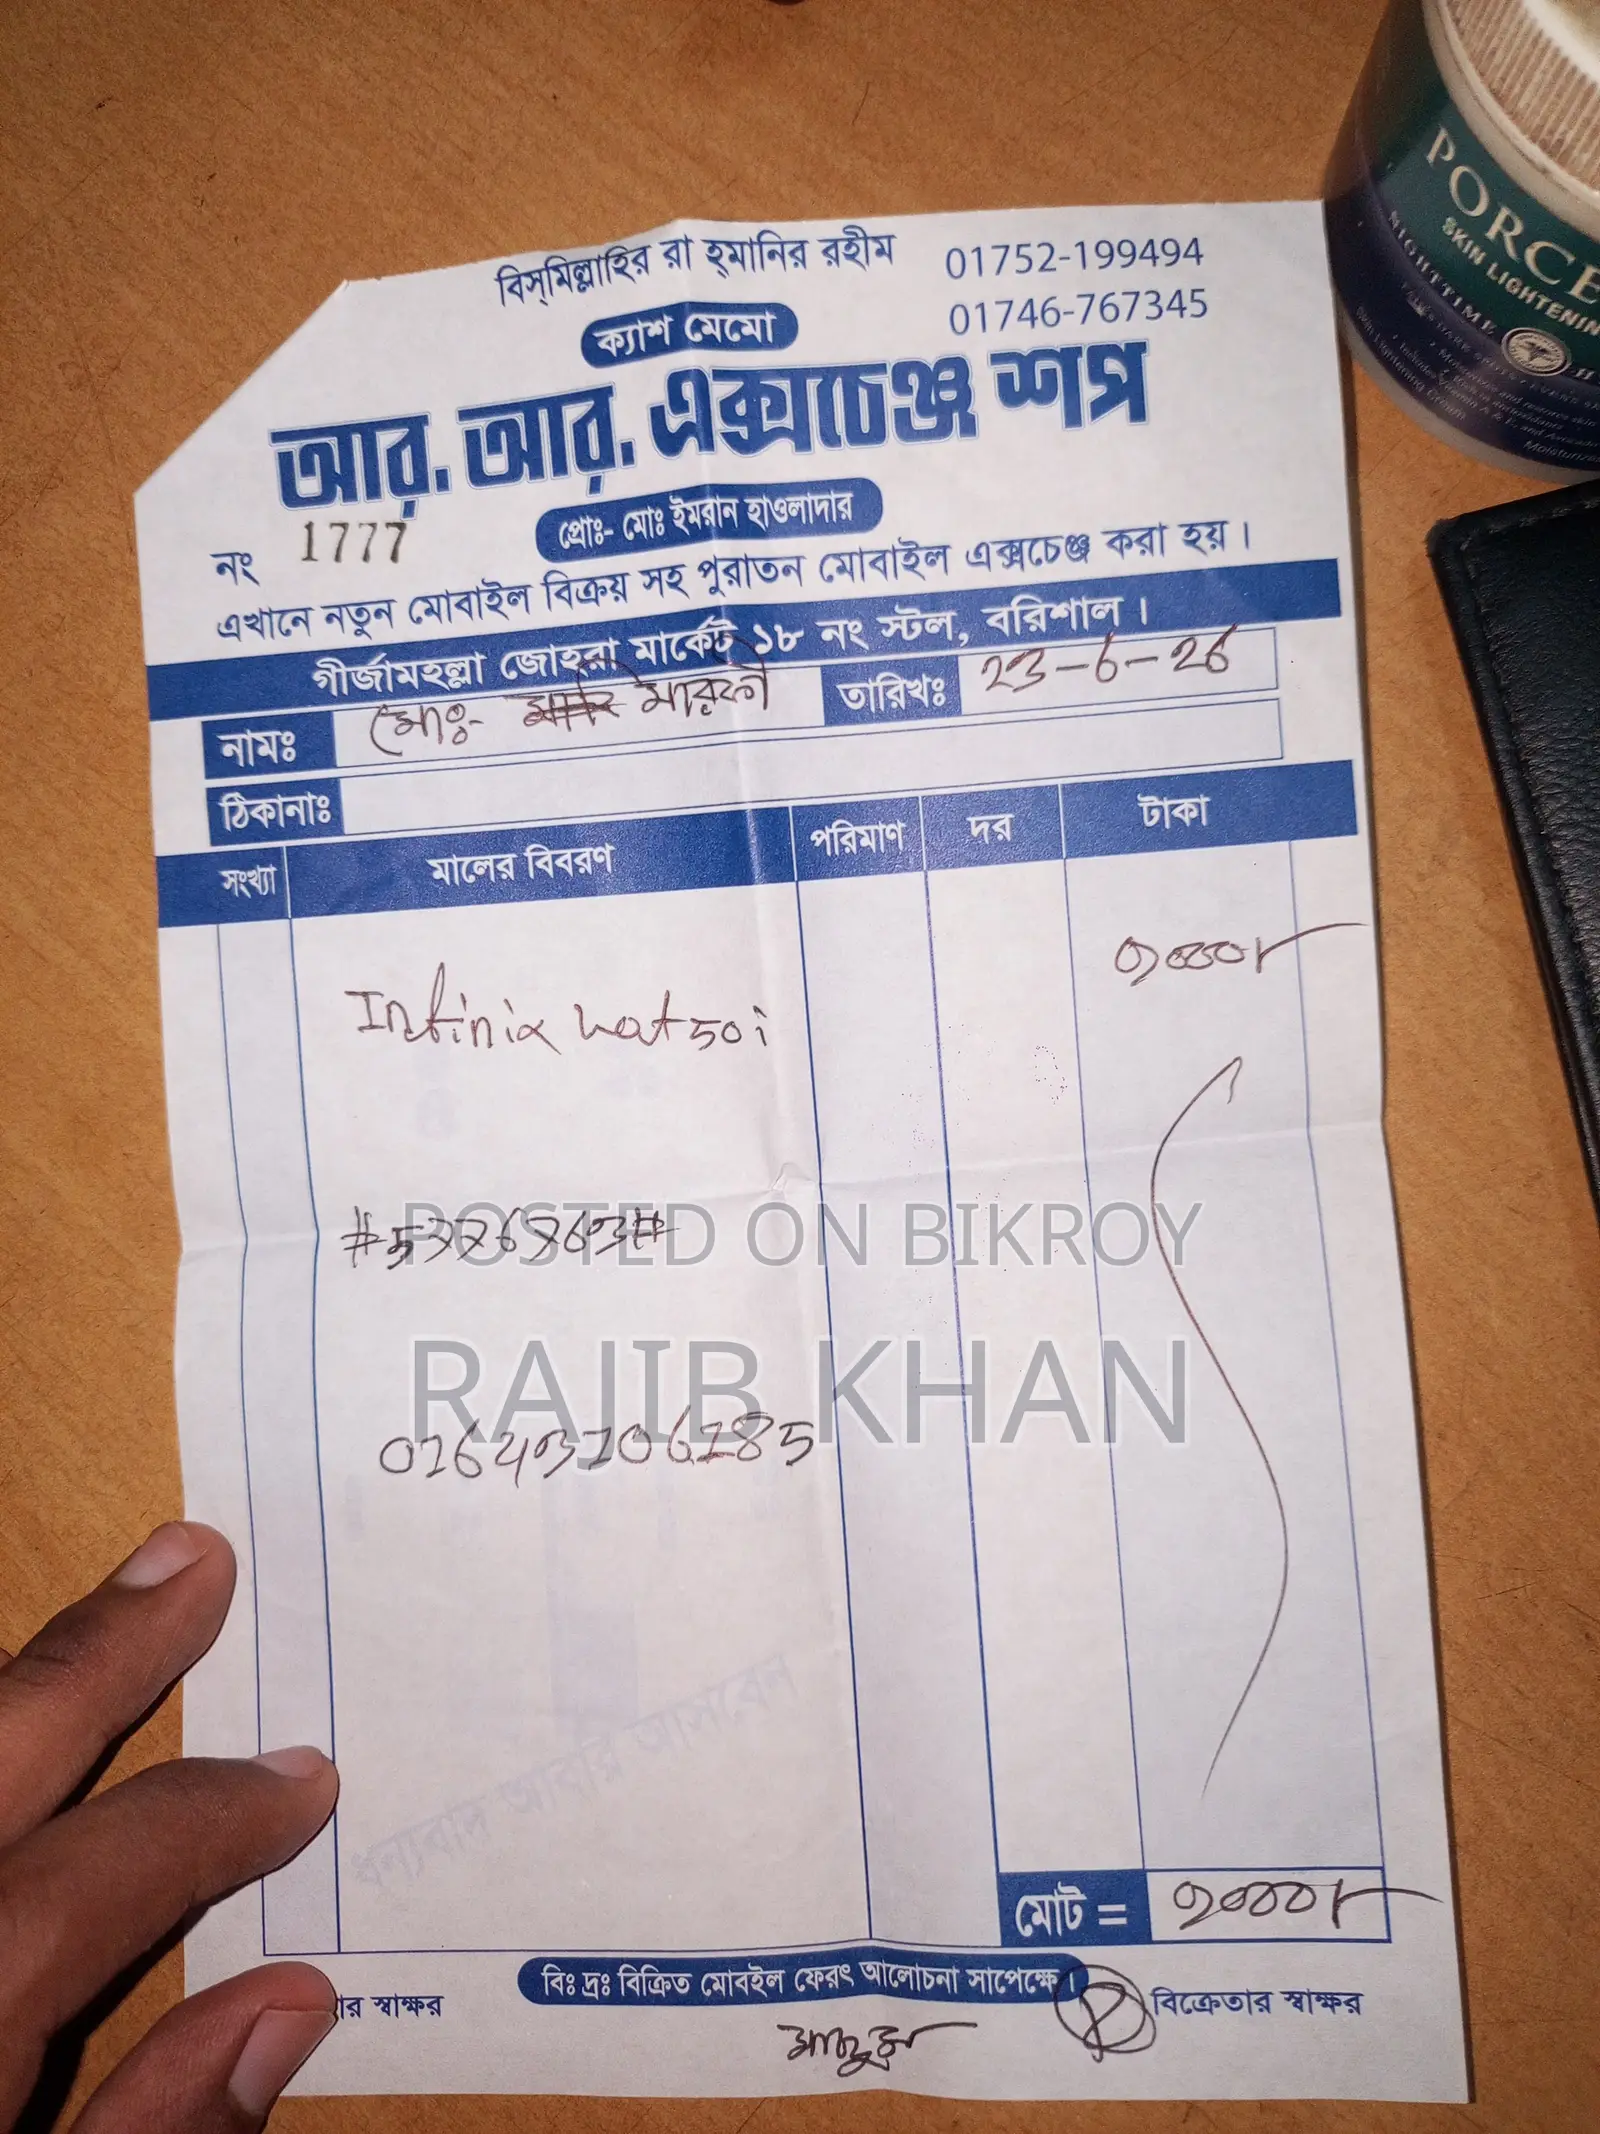 বিস্‌মিল্লাহির রা হ্‌মানির রহীম
01752-199494
01746-767345
ক্যাশ মেমো
আর. আর. এক্সচেঞ্জ শপ
প্রোঃ- মোঃ ইমরান হাওলাদার
নং 1777
এখানে নতুন মোবাইল বিক্রয় সহ পুরাতন মোবাইল এক্সচেঞ্জ করা হয়।
গীর্জামহল্লা জোহরা মার্কেট ১৮ নং স্টল, বরিশাল।
নামঃ মোঃ- মারুফ তারিখঃ 23-6-26
ঠিকানাঃ
সংখ্যা মালের বিবরণ পরিমাণ দর টাকা
Infinix hot 50i ৭০০০/-
POSTED ON BIKROY
RAJIB KHAN
মোট = ৭০০০/-
বিঃ দ্রঃ বিক্রিত মোবইল ফেরৎ আলোচনা সাপেক্ষে।
স্বাক্ষর বিক্রেতার স্বাক্ষর
ধন্যবাদ আবার আসবেন
PORCE
SKIN LIGHTENIN
NIGHTTIME